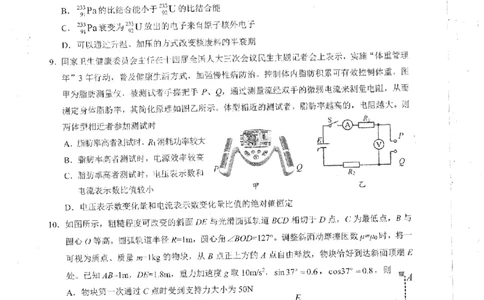 B. ²³³₉₁Pa的比结合能小于²³³₉₂U的比结合能
C. ²³³₉₁Pa衰变为²³³₉₂U放出的电子来自原子核外电子
D. 可以通过升温、加压的方式改变核废料的半衰期
9. 国家卫生健康委员会主任在十四届全国人大三次会议民生主题记者会上表示,实施“体重管理
年”3年行动,普及健康生活方式,加强慢性病防治。控制体内脂肪积累可有效控制体重。图
甲为脂肪测量仪,被测试者手握把手P、Q,通过测量流经双手的微弱电流来测量电阻,从而
测定身体脂肪率,其简化原理如图乙所示。体型相近的测试者,脂肪率越高的,电阻越大,则
两体型相近者参加测试时
A. 脂肪率高者测试时,R₁消耗功率较大
B. 脂肪率高者测试时,电源效率较高
C. 脂肪率高者测试时,电压表示数和
电流表示数比值较小
D. 电压表示数变化量和电流表示数变化量比值的绝对值恒定
P
Q
甲
S
A
R₁
V
P
Q
R₂
乙
10. 如图所示,粗糙程度可改变的斜面DE与光滑圆弧轨道BCD相切于D点,C为最低点,B与
圆心O等高,圆弧轨道半径R=1m,圆心角∠BOD=127°,调整斜面动摩擦因数μ=μ₀时,将一
可视为质点、质量m=1kg的物块,从B点正上方的A点自由释放,物块恰好到达斜面顶端E
处。已知AB=1m,DE=1.8m,重力加速度g取10m/s²,sin37°=0.6,cos37°=0.8,则
A. 物块第一次通过C点时受到支持力大小为50N
E
A